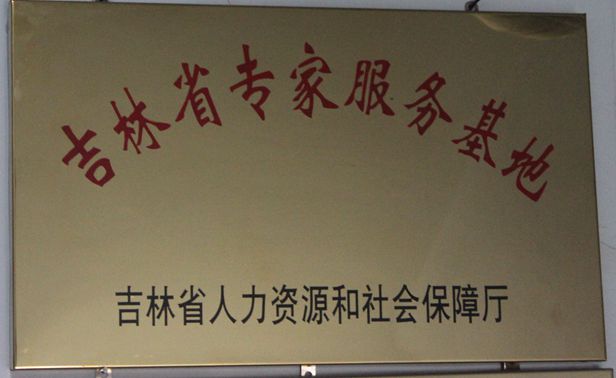 吉林省专家服务基地
吉林省人力资源和社会保障厅